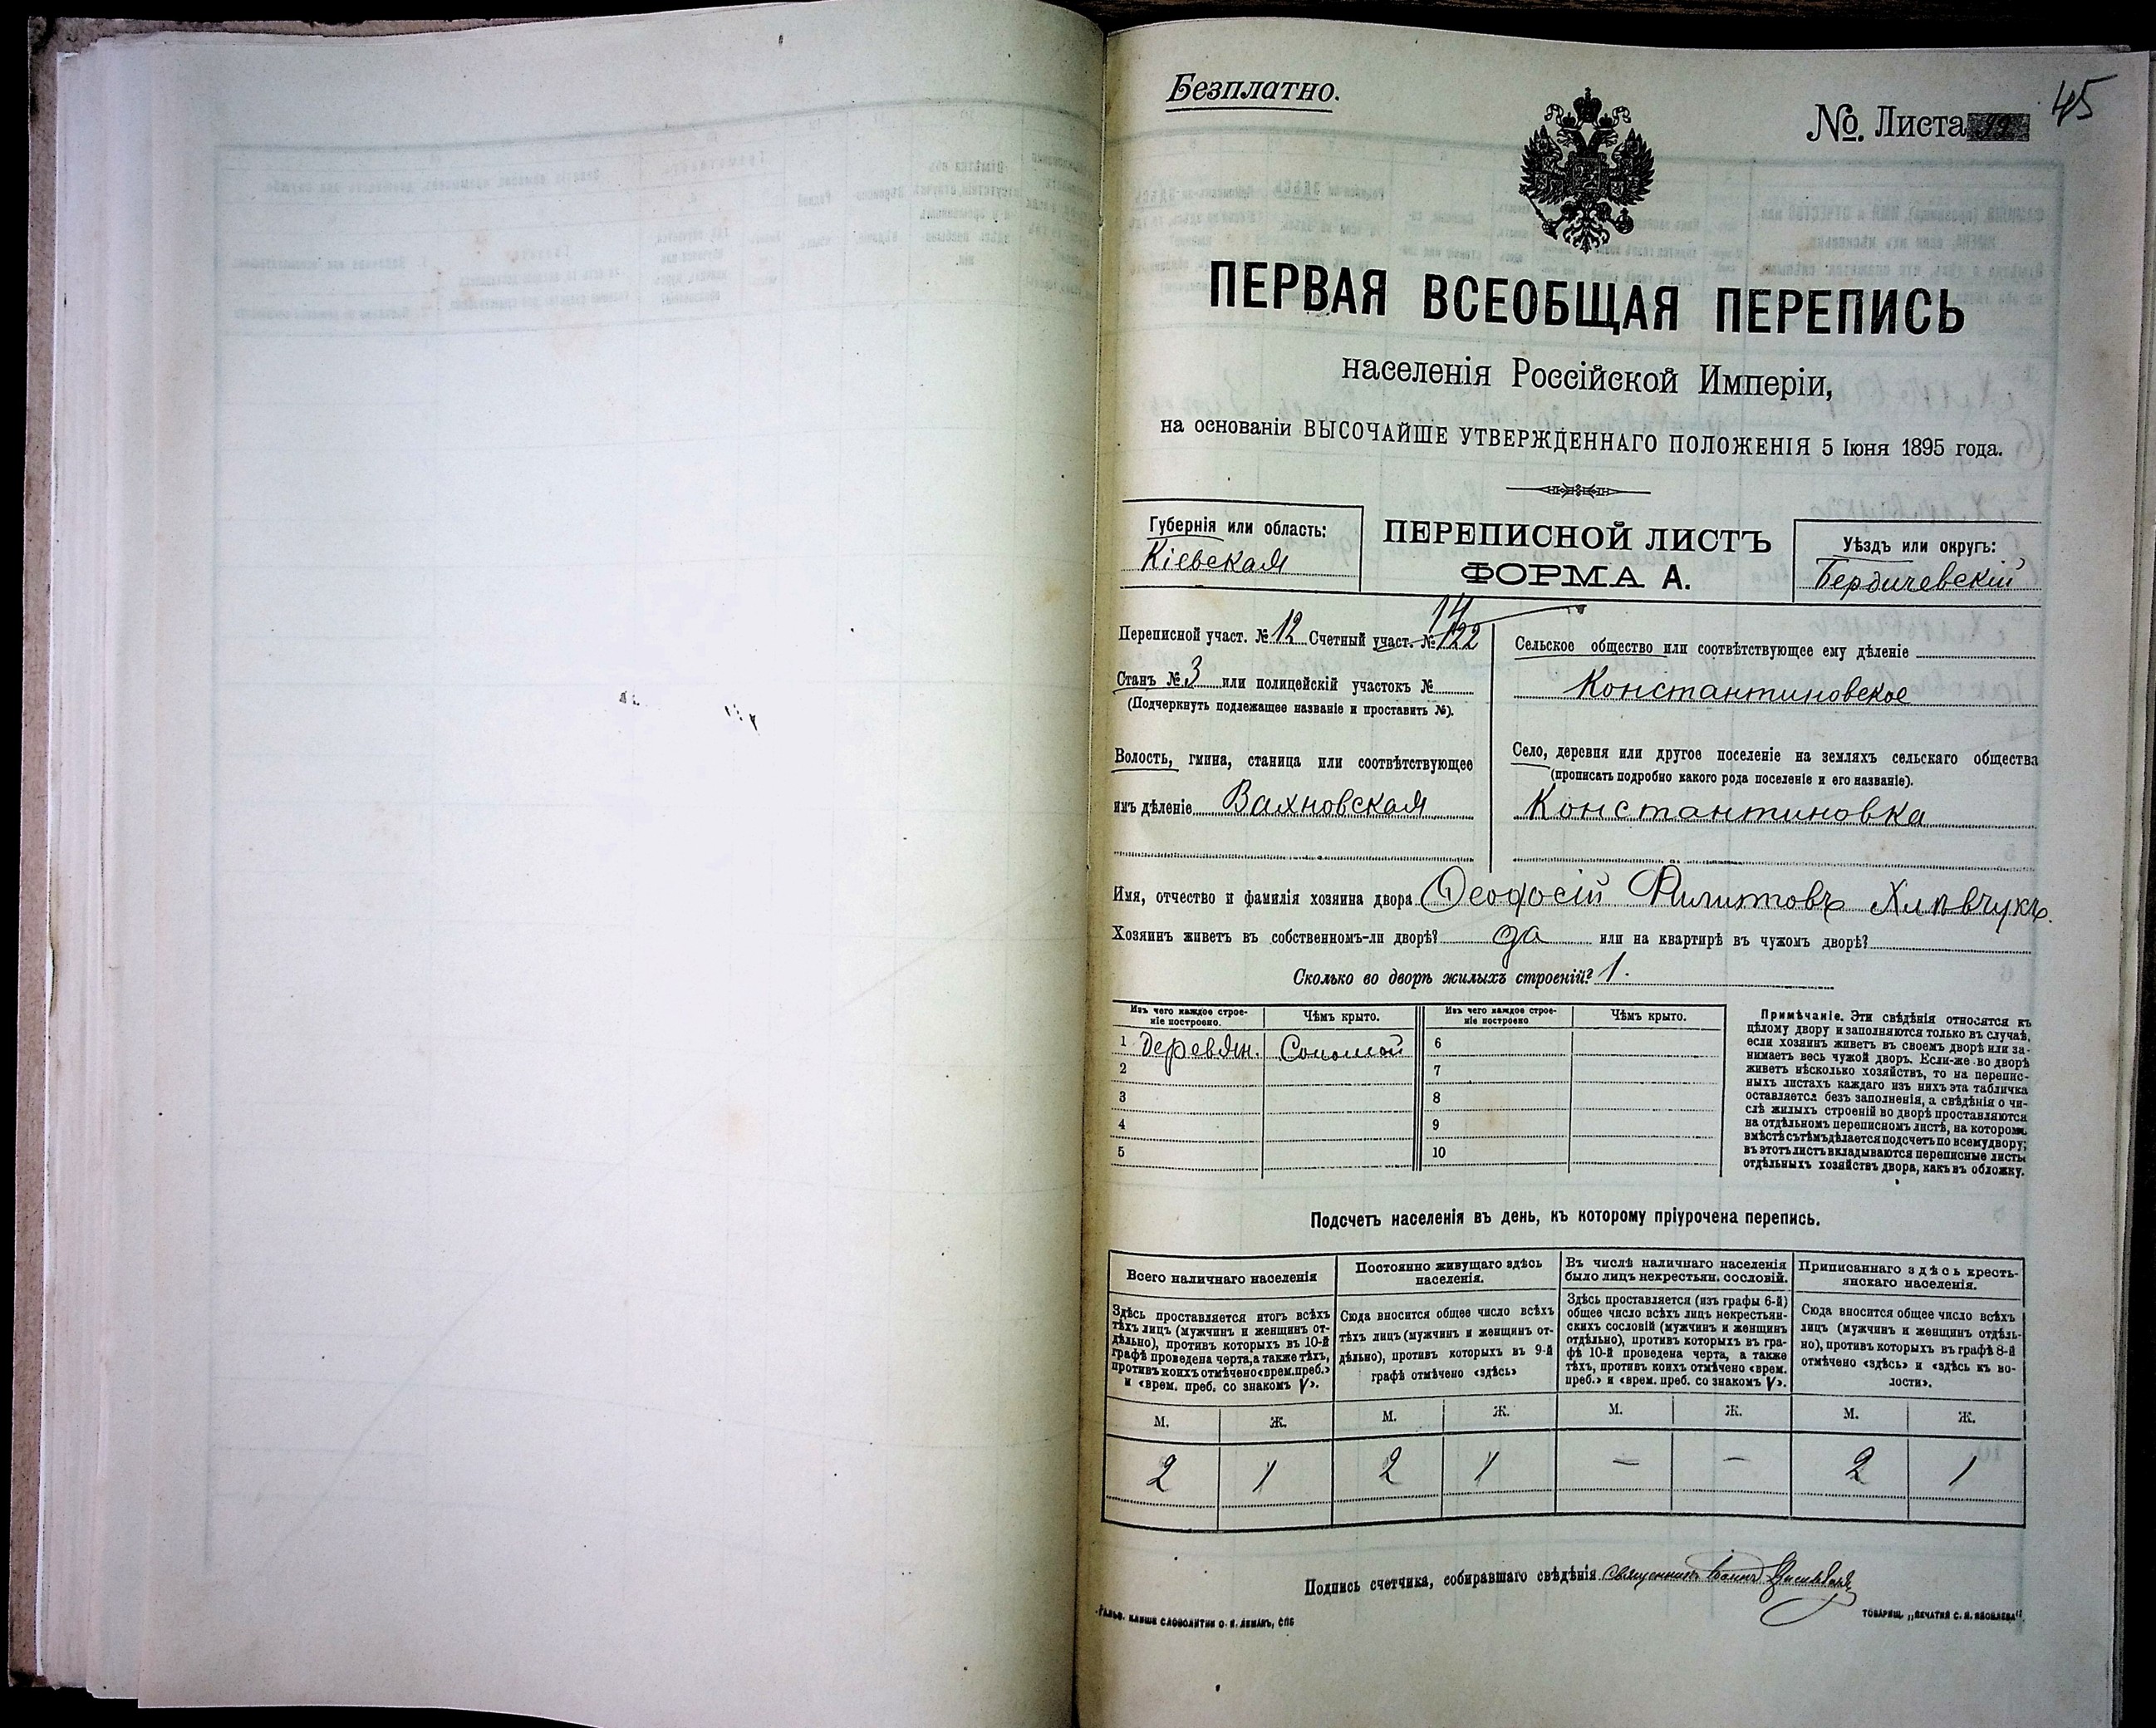 Безплатно.
45
№. Листа
ПЕРВАЯ ВСЕОБЩАЯ ПЕРЕПИСЬ
населенія Россійской Имперіи,
на основаніи ВЫСОЧАЙШЕ УТВЕРЖДЕННАГО ПОЛОЖЕНІЯ 5 Іюня 1895 года.
Губернія или область:
Кіевская
ПЕРЕПИСНОЙ ЛИСТЪ
ФОРМА А.
Уѣздъ или округъ:
Бердичевскій
14
Переписной участ. № 12 Счетный участ. № 122
Станъ № 3 или полицейскій участокъ №
(Подчеркнуть подлежащее названіе и проставить №).
Волость, гмина, станица или соотвѣтствующее
имъ дѣленіе Вахновская
Сельское общество или соотвѣтствующее ему дѣленіе
Константиновское
Село, деревня или другое поселеніе на земляхъ сельскаго общества
(прописать подробно какого рода поселеніе и его названіе).
Константиновка
Имя, отчество и фамилія хозяина двора Ѳеодосій Филиповъ Хлѣвчукъ.
Хозяинъ живетъ въ собственномъ-ли дворѣ? да или на квартирѣ въ чужомъ дворѣ?
Сколько во дворѣ жилыхъ строеній? 1.
Изъ чего каждое строе-
ніе построено.
Чѣмъ крыто.
Изъ чего каждое строе-
ніе построено
Чѣмъ крыто.
1 Деревян. Соломой 6
2 7
3 8
4 9
5 10
Примѣчаніе. Эти свѣдѣнія относятся къ
цѣлому двору и заполняются только въ случаѣ,
если хозяинъ живетъ въ своемъ дворѣ или за-
нимаетъ весь чужой дворъ. Если-же во дворѣ
живетъ нѣсколько хозяйствъ, то на перепис-
ныхъ листахъ каждаго изъ нихъ эта табличка
оставляется безъ заполненія, а свѣдѣнія о чи-
слѣ жилыхъ строеній во дворѣ проставляются
на отдѣльномъ переписномъ листѣ, на которомъ
вмѣстѣ съ тѣмъ дѣлается подсчетъ по всему двору;
въ этотъ листъ вкладываются переписные листы
отдѣльныхъ хозяйствъ двора, какъ въ обложку.
Подсчетъ населенія въ день, къ которому пріурочена перепись.
Всего наличнаго населенія
Здѣсь проставляется итогъ всѣхъ
тѣхъ лицъ (мужчинъ и женщинъ от-
дѣльно), противъ которыхъ въ 10-й
графѣ проведена черта, а также тѣхъ,
противъ коихъ отмѣчено «врем. преб.»
и «врем. преб. со знакомъ V».
Постоянно живущаго здѣсь
населенія.
Сюда вносится общее число всѣхъ
тѣхъ лицъ (мужчинъ и женщинъ от-
дѣльно), противъ которыхъ въ 9-й
графѣ отмѣчено «здѣсь»
Въ числѣ наличнаго населенія
было лицъ некрестьян. сословій.
Здѣсь проставляется (изъ графы 6-й)
общее число всѣхъ лицъ некрестьян-
скихъ сословій (мужчинъ и женщинъ
отдѣльно), противъ которыхъ въ гра-
фѣ 10-й проведена черта, а также
тѣхъ, противъ коихъ отмѣчено «врем.
преб.» и «врем. преб. со знакомъ V».
Приписаннаго здѣсь кресть-
янскаго населенія.
Сюда вносится общее число всѣхъ
лицъ (мужчинъ и женщинъ отдѣль-
но), противъ которыхъ въ графѣ 8-й
отмѣчено «здѣсь» и «здѣсь къ во-
лости».
М. Ж. М. Ж. М. Ж. М. Ж.
2 1 2 1 — — 2 1
Подпись счетчика, собиравшаго свѣдѣнія священникъ
ГАЛЬВ. КЛИШЕ СЛОВОЛИТНИ О. И. ЛЕМАНЪ, СПБ
ТОВАРИЩ. „ПЕЧАТНЯ С. П. ЯКОВЛЕВА".